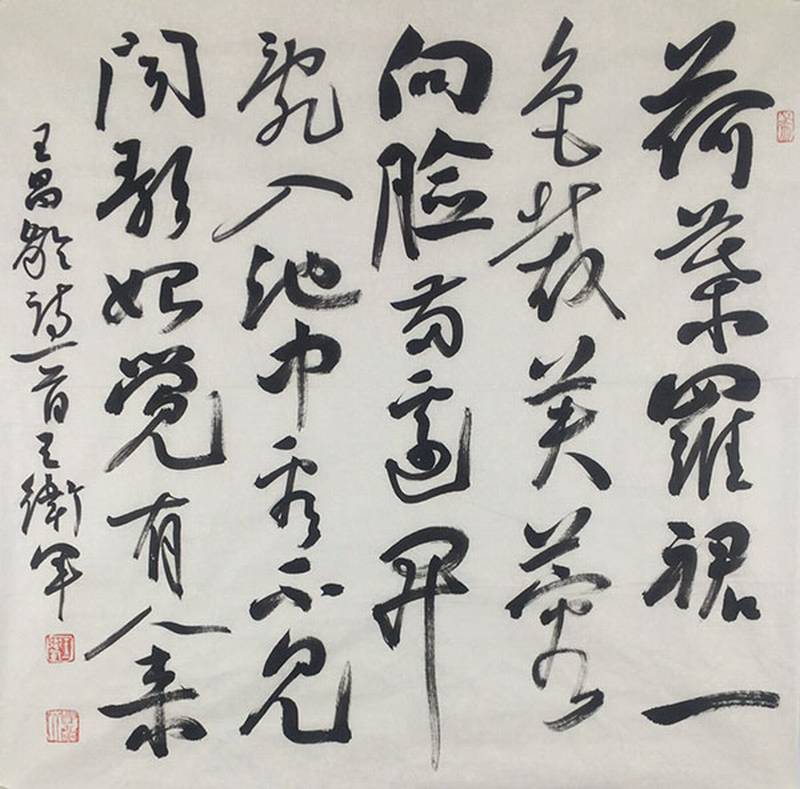 荷葉羅裙一
色裁芙蓉
向臉兩邊開
亂入池中看不見
聞歌始覺有人來
王昌齡詩一首王衛軍